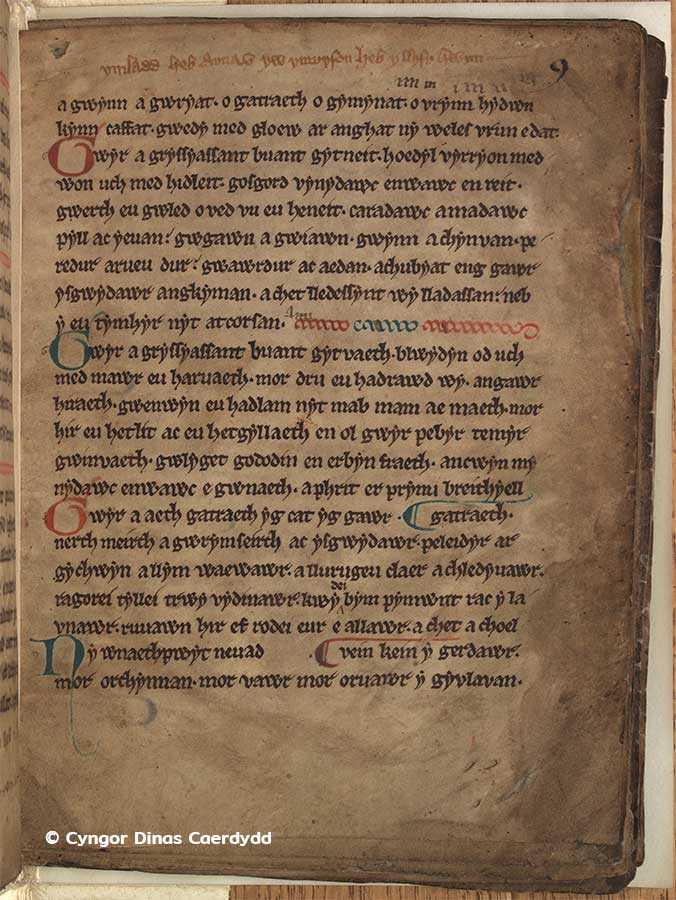 9
a gwynn a gwryat. o gatraeth o gymynat. o vrynn hydwn
kynn caffat. gwedy med gloew ar anghat ny weles vrun e dat.
Gwyr a gryssyassant buant gytneit. hoedyl vyrryon med
won uch med hidleit. gosgord vynydawc enwawc en reit.
gwerth eu gwled o ved vu eu heneit. caradawc a madawc
pyll ac yeuan. gwgawn a gwiawn. gwynn a chynvan. pe
redur arueu dur. gwawrdur ac aedan. achubyat eng gawr
ysgwydawr angkyman. a chet lledessynt wy lladassan. neb
y eu tymhyr nyt atcorsan.
Gwyr a gryssyassant buant gytvaeth. blwydyn od uch
med mawr eu haruaeth. mor dru eu hadrawd wy. angawr
hiraeth. gwenwyn eu hadlam nyt mab mam ae maeth. mor
hir eu hetlit ac eu hetgyllaeth en ol gwyr pebyr temyr
gwinvaeth. gwlyget gododin en erbyn fraeth. ancwyn my
nydawc enwawc e gwnaeth. a phrit er prynu breithyell
Gwyr a aeth gatraeth yg cat yg gawr. gatraeth.
nerth meirch a gwrymseirch ac ysgwydawr. peleidyr ar
gychwyn a llym waewawr. a llurugeu claer a chledyuawr.
ragorei tyllei trwy vydinawr. kwydei bym pymwnt rac y la
vnawr. ruuawn hir ef rodei eur e allawr. a chet a choel
Ny wnaethpwyt neuad vein kein y gerdawr.
mor orchynnan. mor vawr mor oruawr y gyvlavan.
© Cyngor Dinas Caerdydd